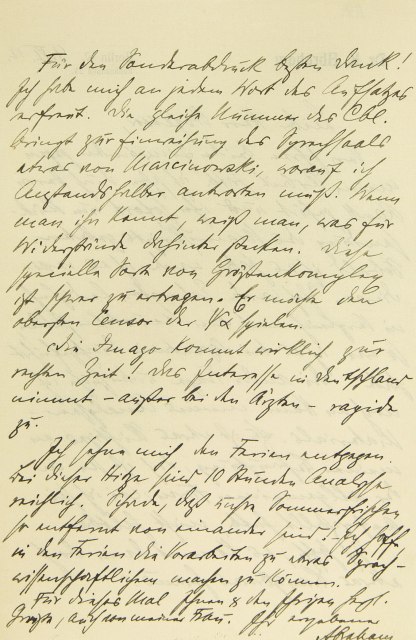 Für den Sonderabdruck besten Dank!
Ich habe mich an jedem Wort des Aufsatzes
erfreut. Die gleiche Nummer des Cbl.
bringt zur Einweihung des Sprechsaals
etwas von Marcinowski, worauf ich
Anstandshalber antworten muß. Wenn
man ihn kennt, weiß man, was für
Widerstände dahinter stecken. Diese
specielle Sorte von Größenkomplex
ist schwer zu ertragen. Er möchte den
obersten Censor der ΨΑ spielen.
Die Imago kommt wirklich zur
rechten Zeit! Das Interesse in Deutschland
nimmt – außer bei den Ärzten – rapide
zu.
Ich sehne mich den Ferien entgegen
Bei dieser Hitze sind 10 Stunden Analyse
reichlich. Schade, daß unsre Sommerfrischen
so entfernt von einander sind. Ich hoffe
in den Ferien die Vorarbeiten zu etwas Sprach-
wissenschaftlichem machen zu können.
Für dieses Mal Ihnen & den Ihrigen herzl.
Grüße, auch von meiner Frau. Ihr ergebener
Abraham